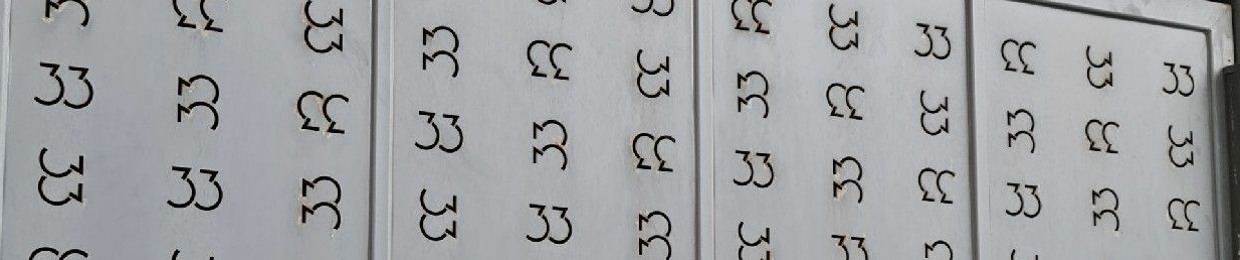 33 33 33 33 33 33
33 33 33 33 33 33 33 33 33 33 33 33
33 33 33 33 33 33 33 33 33 33 33 33
33 33 33 33 33 33 33 33